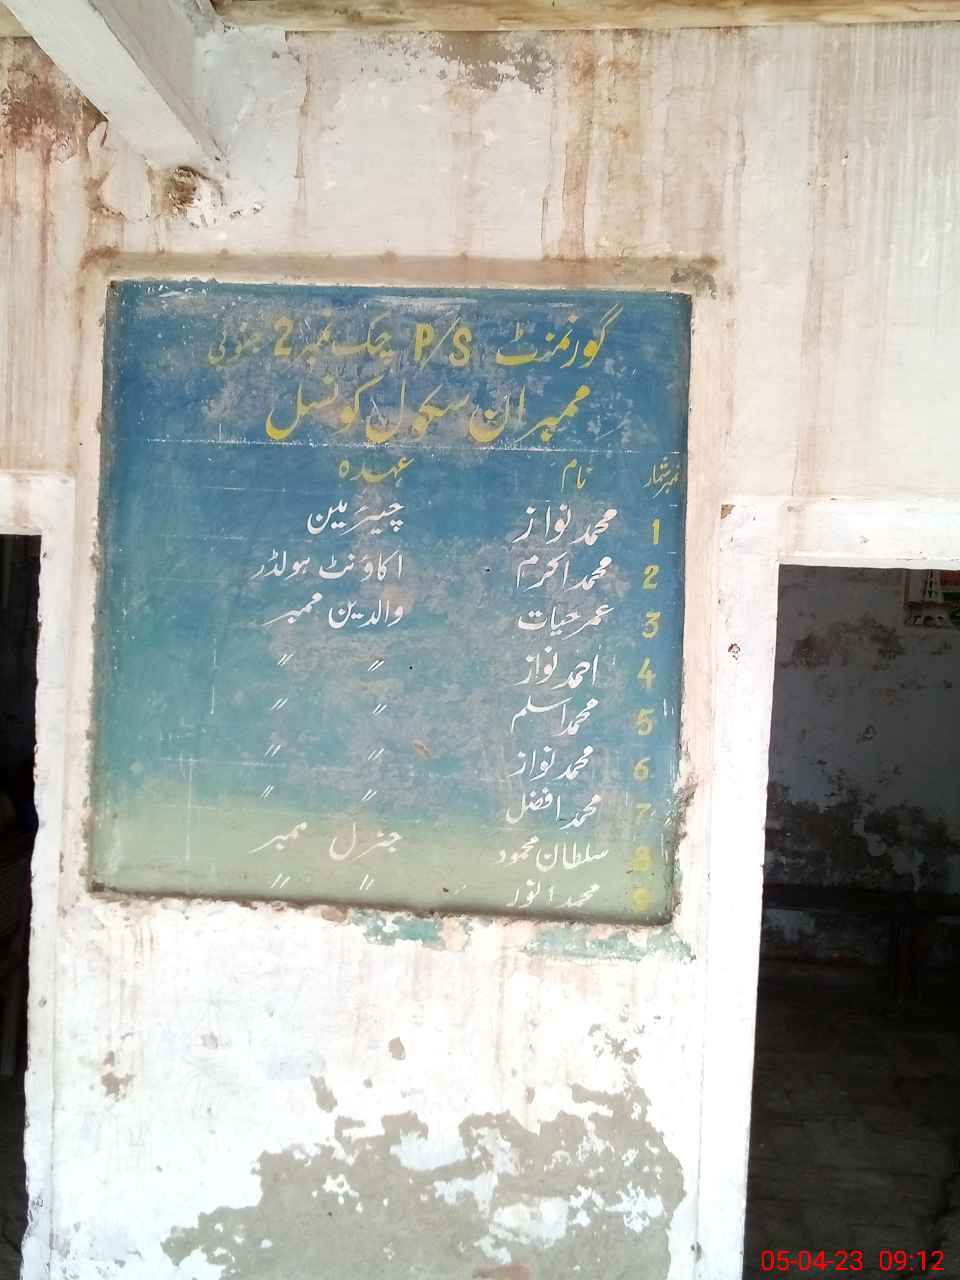 گورنمنٹ P/S چک نمبر 2 جنوبی
ممبران سکول کونسل
نمبر شمار نام عہدہ
1 محمد نواز چیئرمین
2 محمد اکرم اکاؤنٹ ہولڈر
3 عمر حیات والدین ممبر
4 احمد نواز 〃 〃
5 محمد اسلم 〃 〃
6 محمد نواز 〃 〃
7 محمد افضل 〃 〃
8 سلطان محمود جنرل ممبر
9 محمد انوار 〃 〃
05-04-23 09:12